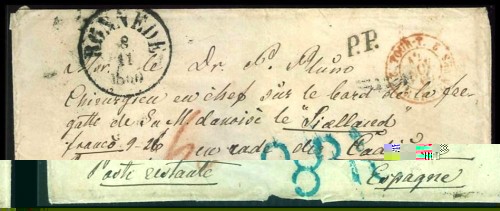 RÖNNEDE
8
11
P.P.
Mr. le Dr. P. Bruno
Chirurgien en chef sur le bord de la fre-
gatte de S. M. danoise le "Siælland"
franco 9-26 en rade de Cadix
Poste restante Espagne